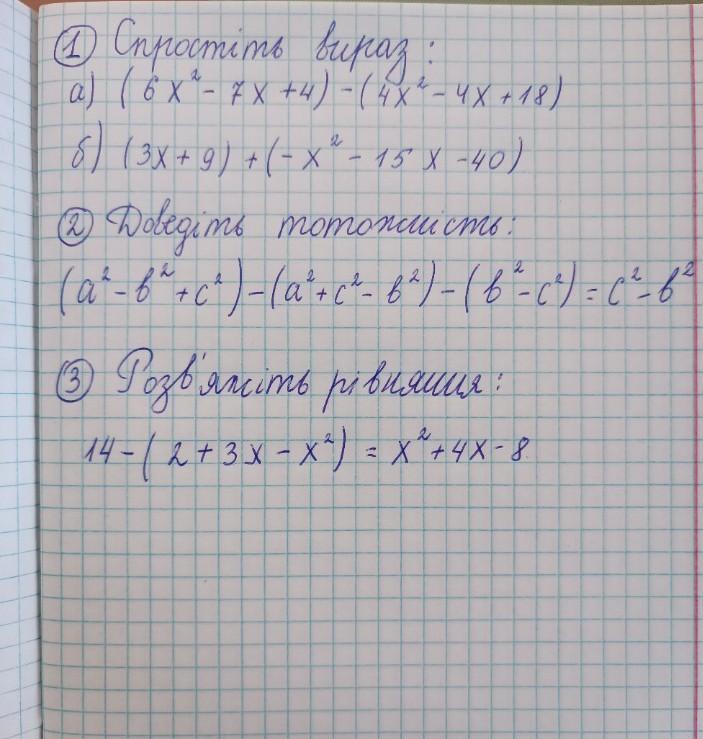 ① Спростіть вираз:
а) (6x² - 7x + 4) - (4x² - 4x + 18)
б) (3x + 9) + (- x² - 15x - 40)
② Доведіть тотожність:
(a² - b² + c²) - (a² + c² - b²) - (b² - c²) = c² - b²
③ Розв'яжіть рівняння:
14 - (2 + 3x - x²) = x² + 4x - 8